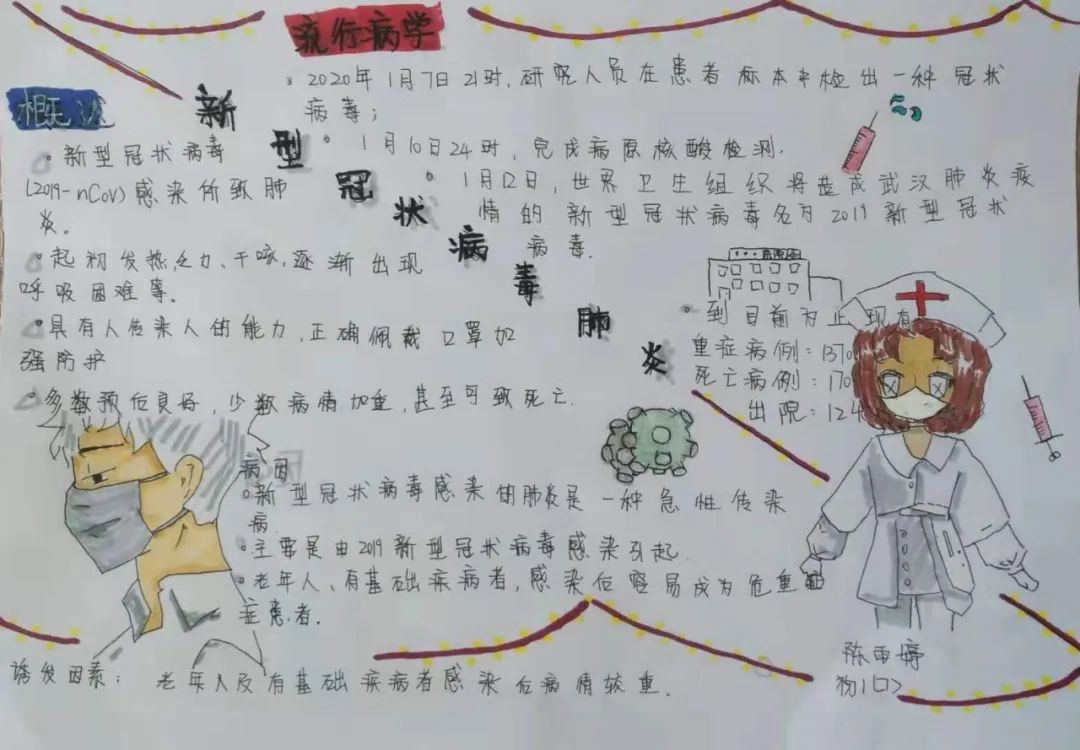 流行病学
。2020年1月7日21时,研究人员在患者标本中检出一种冠状
病毒;
。1月10日24时,完成病原核酸检测.
。1月12日,世界卫生组织将造成武汉肺炎疫
情的新型冠状病毒名为2019新型冠状
病毒.
新型冠状病毒肺炎
概述
。新型冠状病毒
(2019-nCoV)感染所致肺
炎。
。起初发热,乏力、干咳,逐渐出现
呼吸困难等。
。具有人传染人的能力,正确佩戴口罩加
强防护
。多数预后良好,少数病情加重,甚至可致死亡.
。到目前为止现有
重症病例:1370
死亡病例:170
出院:124
病因
。新型冠状病毒感染的肺炎是一种急性传染
病
。主要是由2019新型冠状病毒感染引起.
。老年人、有基础疾病者,感染后容易成为危重
症患者.
诱发因素: 老年人及有基础疾病者感染后病情较重.
陈雨婷